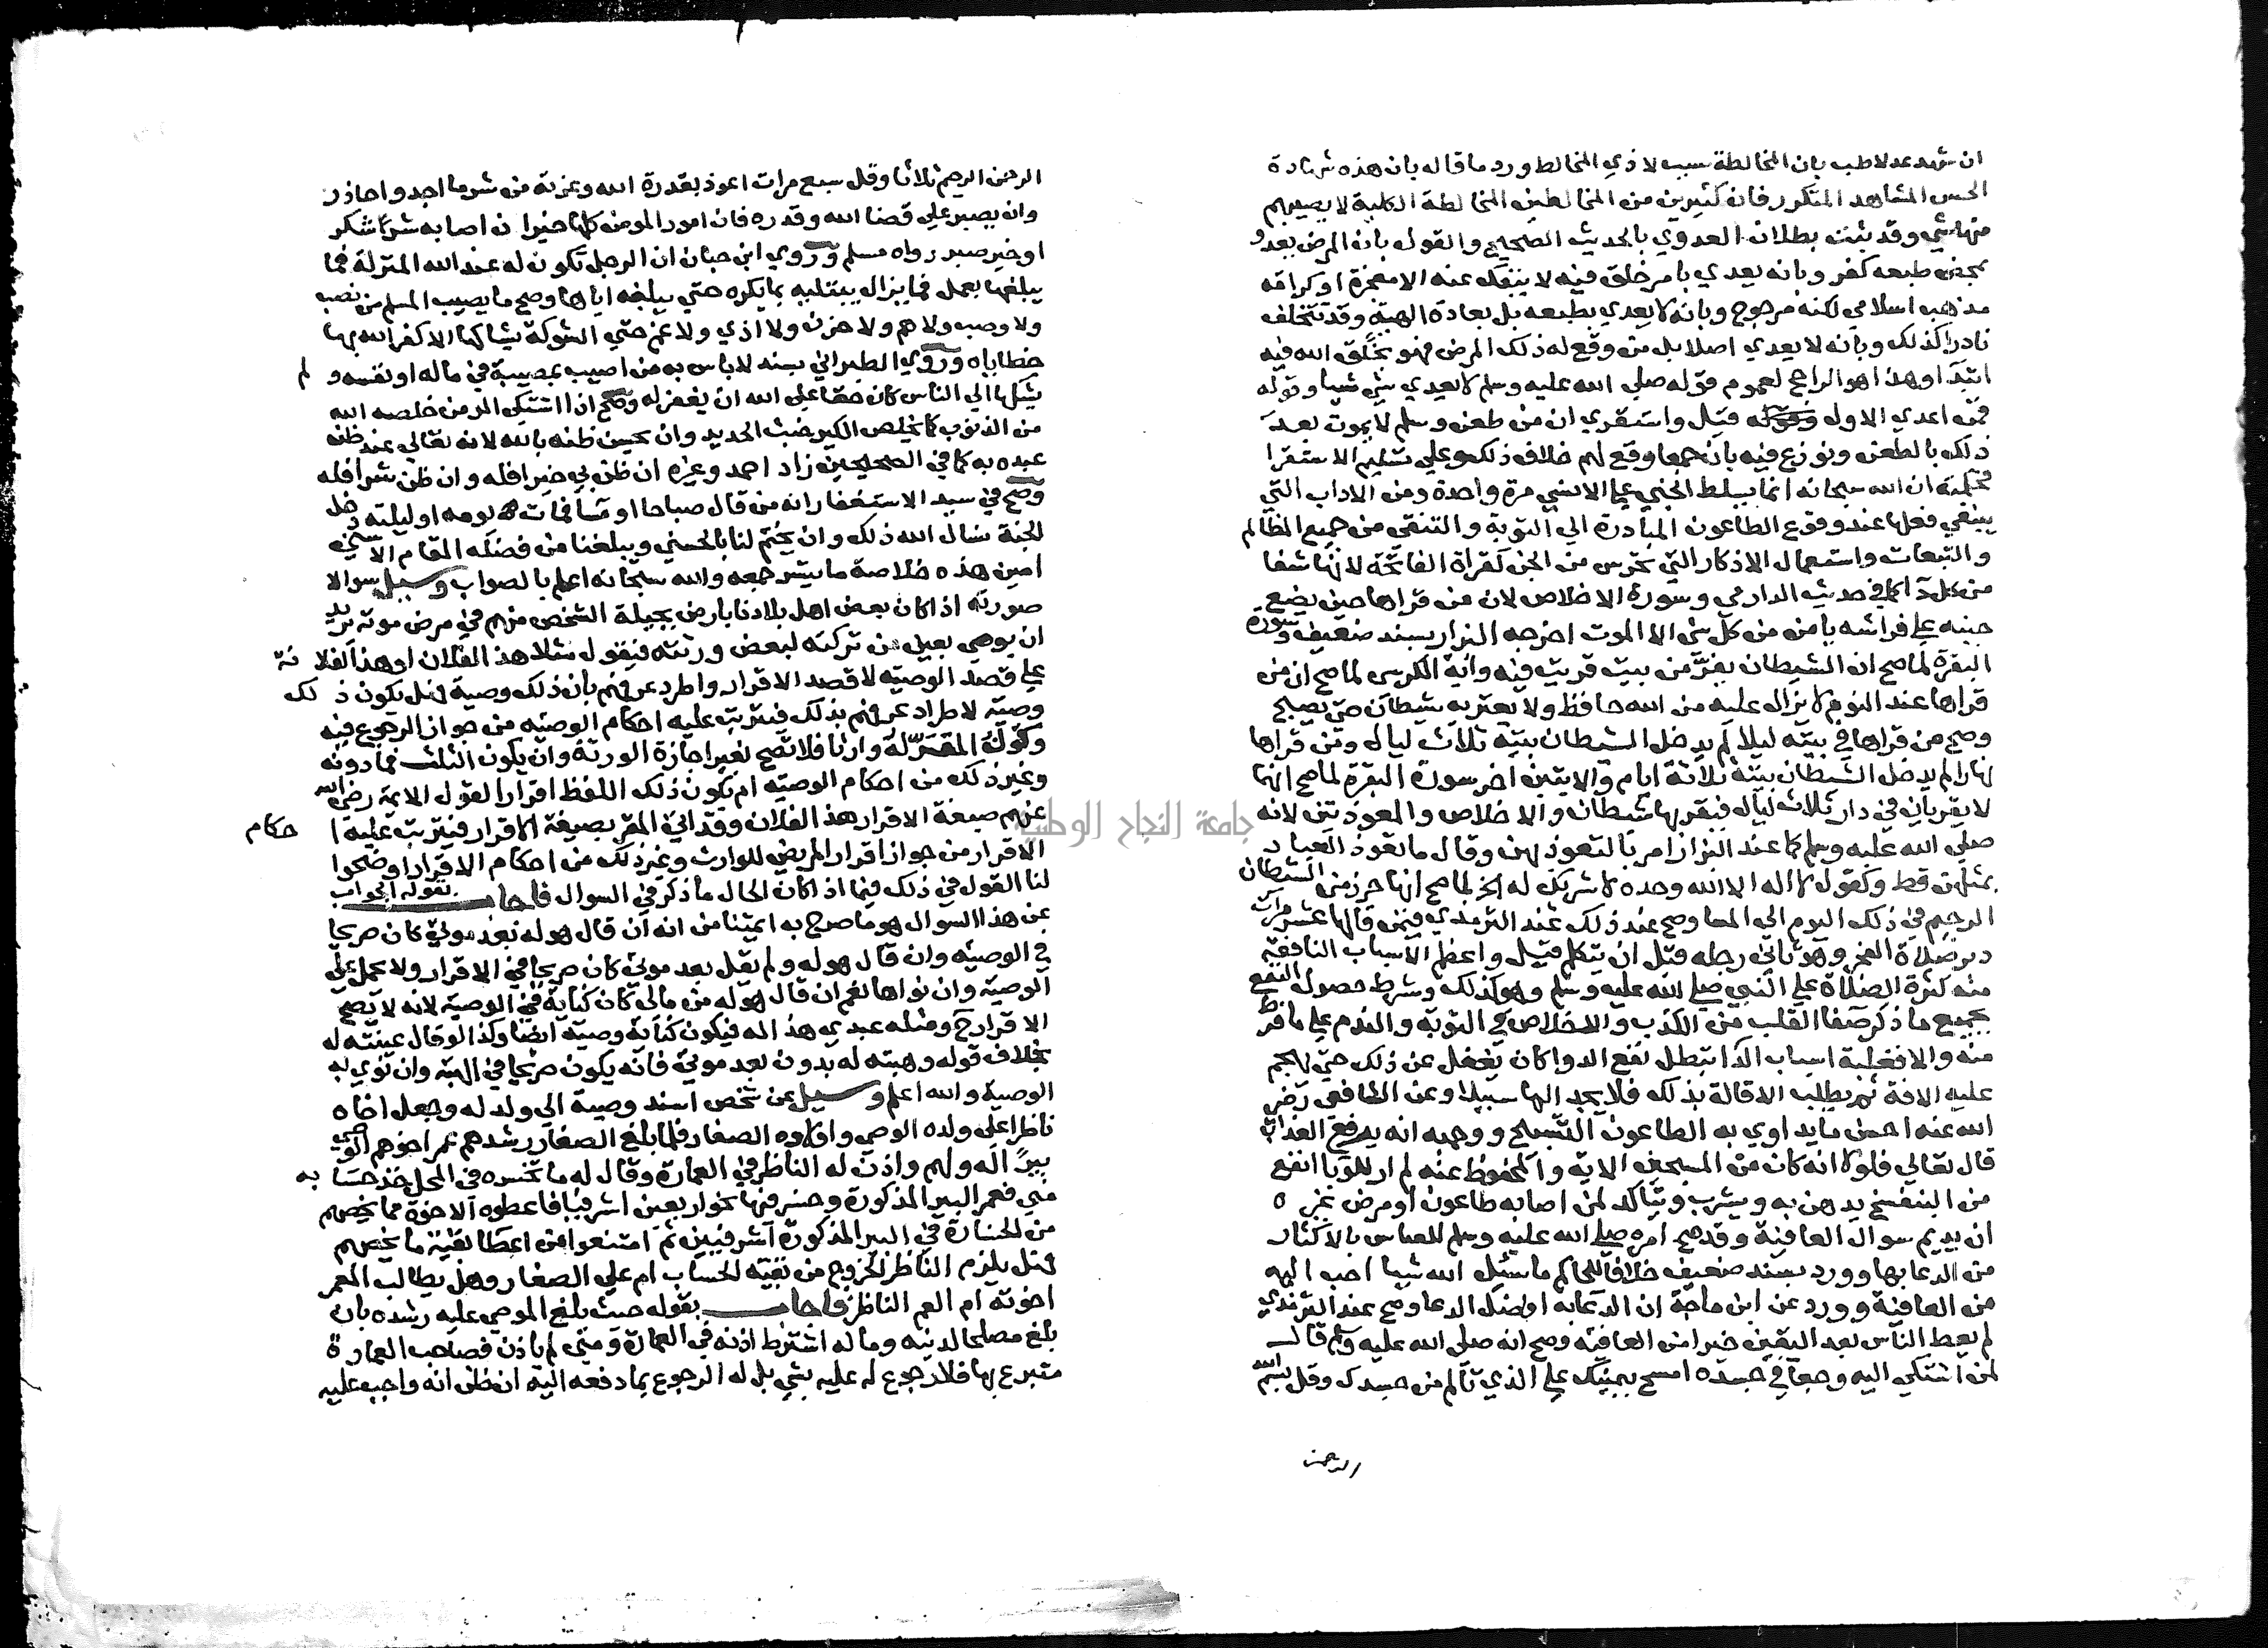 ان شهد عدلا طب بان المخالطة سبب لاذي المخالط ورد ما قاله بان هذه شهادة
الحس المشاهد المتكرر فان كثيرين من المخالطين المخالطة الكلية لا يصيبهم
منها شي وقد ثبت بطلان العدوي بالحديث الصحيح والقول بان المرض يعدو
بمحض طبعه كفر وبانه يعدي بامر خلق فيه لا ينفك عنه الا معجزة او كرامة
مذهب اسلامي لكنه مرجوح وبانه لا يعدي بطبعه بل بعادة الهية وقد تتخلف
نادرا كذلك وبانه لا يعدي اصلا بل من وقع له ذلك المرض فهو بخلق الله فيه
ابتدا وهذا هو الراجح لعموم قوله صلي الله عليه وسلم لا يعدي شي شيا وقوله
فمن اعدي الاول قيل واستقري ان من طعن وسلم لا يموت بعد
ذلك بالطعن ونوزع فيه بان جمعا وقع لهم خلاف ذلك وعلي تسليم الاستقرا
فحكمته ان الله سبحانه انما يسلط الجني علي الانسي مرة واحدة ومن الاداب التي
ينبغي فعلها عند وقوع الطاعون المبادرة الي التوبة والتنقي من جميع المظالم
والتبعات واستعمال الاذكار التي تحرس من الجن كقراة الفاتحة لانها شفا
من كل دا كما في حديث الدارمي وسورة الاخلاص لان من قراها حين يضع
جنبه علي فراشه يامن من كل شي الا الموت اخرجه البزار بسند ضعيف وسورة
البقرة لما صح ان الشيطان يفر من بيت قريت فيه واية الكرسي لما صح ان من
قراها عند النوم لا يزال عليه من الله حافظ ولا يعتريه شيطان حتي يصبح
وصح من قراها في بيته ليلا لم يدخل الشيطان بيته ثلاث ليال ومن قراها
نهارا لم يدخل الشيطان بيته ثلاثة ايام والايتين اخر سورة البقرة لما صح انهما
لا يقريان في دار ثلاث ليال فيقربها شيطان والاخلاص والمعوذتين لانه
صلي الله عليه وسلم كما عند البزار امر بالتعوذ بهن وقال ما تعوذ العباد
بمثلهن قط وكقول لا اله الا الله وحده لا شريك له الخ لما صح انها حرز من الشيطان
الرجيم في ذلك اليوم الي المسا وصح عند ذلك عند الترمذي فيمن قالها عشر مرات
دبر صلاة الفجر وهو ثاني رجله قبل ان يتكلم قيل واعظم الاسباب النافعة
منه كثرة الصلاة علي النبي صلي الله عليه وسلم وهو كذلك وشرط حصول النفع
بجميع ما ذكر صفا القلب من الكذب والاخلاص في التوبة والندم علي ما فرط
منه والا فغلبة اسباب الدا تبطل نفع الدوا كان يغفل عن ذلك حتي يهجم
عليه الافة ثم يطلب الاقالة بذلك فلا يجد اليها سبيلا وعن الشافعي رضي
الله عنه احسن ما يداوي به الطاعون التسبيح ووجهه انه يدفع العذاب
قال تعالي فلولا انه كان من المسبحين الاية والمحفوظ عنه لم ار للوبا انفع
من البنفسج يدهن به ويشرب ويتاكد لمن اصابه طاعون او مرض غيره
ان يديم سوال العافية وقد صح امره صلي الله عليه وسلم للعباس بالاكثار
من الدعا بها وورد بسند ضعيف خلافا للحاكم ما سئل الله شيا احب اليه
من العافية وورد عن ابن ماجة ان الدعا به افضل الدعا وصح عند الترمذي
لم يعط الناس بعد اليقين خيرا من العافية وصح انه صلي الله عليه وسلم قال
لمن اشتكي اليه وجعا في جسده امسح بيمينك علي الذي تالم من جسدك وقل بسم الله
الرحمن
الرحمن الرحيم ثلاثا وقل سبع مرات اعوذ بقدرة الله وعزته من شر ما اجد واحاذر
وان يصبر علي قضا الله وقدره فان امور المومن كلها خير ان اصابه شر شكر
او خير صبر رواه مسلم وروي ابن حبان ان الرجل تكون له عند الله المنزلة فما
يبلغها بعمل فما يزال يبتليه بما يكره حتي يبلغه اياها وصح ما يصيب المسلم من نصب
ولا وصب ولا هم ولا حزن ولا اذي ولا غم حتي الشوكة يشاكها الا كفر الله بها
خطاياه وروي الطبراني بسند لا باس به من اصيب بمصيبة في ماله او نفسه ولم
يشكها الي الناس كان حقا علي الله ان يغفر له وصح اذا اشتكي المومن خلصه الله
من الذنوب كما يخلص الكير خبث الحديد وان يحسن ظنه بالله لانه تعالي عند ظن
عبده به كما في الصحيحين زاد احمد وغيره ان ظن بي خيرا فله وان ظن شرا فله
وصح في سيد الاستغفار انه من قال صباحا او مسا فمات يومه او ليلته دخل
الجنة نسال الله ذلك وان يختم لنا بالحسني ويبلغنا من فضله المقام الاسني
امين هذه خلاصة ما تيسر جمعه والله سبحانه اعلم بالصواب وسيل سوالا
صورته اذا كان بعض اهل بلادنا بارض بجيلة الشخص منهم في مرض موته يريد
ان يوصي بعين من تركته لبعض ورثته فيقول مثلا هذا لفلان او هذا لفلانة
علي قصد الوصية لا قصد الاقرار واطرد عرفهم بان ذلك وصية فهل يكون ذلك
وصية لاطراد عرفهم بذلك فيترتب عليه احكام الوصية من جواز الرجوع فيه
وكون المقر له وارثا فلا تصح لغير اجازة الورثة وان يكون الثلث فما دونه
وغير ذلك من احكام الوصية ام يكون ذلك اللفظ اقرارا لقول الايمة رضي الله
عنهم صيغة الاقرار هذا لفلان وقد اتي المقر بصيغة الاقرار فيترتب عليه احكام
الاقرار من جواز اقرار المريض للوارث وغير ذلك من احكام الاقرار اوضحوا
لنا القول في ذلك فيما اذا كان الحال ما ذكر في السوال فاجاب بقوله الجواب
عن هذا السوال هو ما صرح به ايمتنا من انه ان قال هو له بعد موتي كان صريحا
في الوصية وان قال هو له ولم يقل بعد موتي كان صريحا في الاقرار ولا يحمل علي
الوصية وان نواها نعم ان قال هو له من مالي كان كناية في الوصية لانه لا يصح
الاقرار ح ومثله عبدي هذا له فيكون كناية وصية ايضا وكذا لو قال عينته له
بخلاف قوله وهبته له بدون بعد موتي فانه يكون صريحا في الهبة وان نوي به
الوصية والله اعلم وسيل عن شخص اسند وصية الي ولد له وجعل اخاه
ناظرا علي ولده الوصي واولاده الصغار فلما بلغ الصغار رشدهم عمر اخوهم الوصي
بيرا له ولهم واذن له الناظر في العمارة وقال له ما تخسره في المحل خذ حسابه
مني فعمر البير المذكورة وخسر فيها نحو اربعين اشرفيا فاعطوه الاخوة مما يخصهم
من الخسارة في البير المذكورة اشرفيين ثم امتنعوا من اعطا بقية ما يخصهم
فهل يلزم الناظر الخروج من بقية الحساب ام علي الصغار وهل يطالب المعمر
اخوته ام العم الناظر فاجاب بقوله حيث بلغ الموصي عليه رشده بان
بلغ مصلحا لدينه وماله اشترط اذنه في العمارة ومتي لم ياذن فصاحب العمارة
متبرع بها فلا رجوع له عليه بشي بل له الرجوع بما دفعه اليه ان ظن انه واجب عليه
جامعة النجاح الوطنية